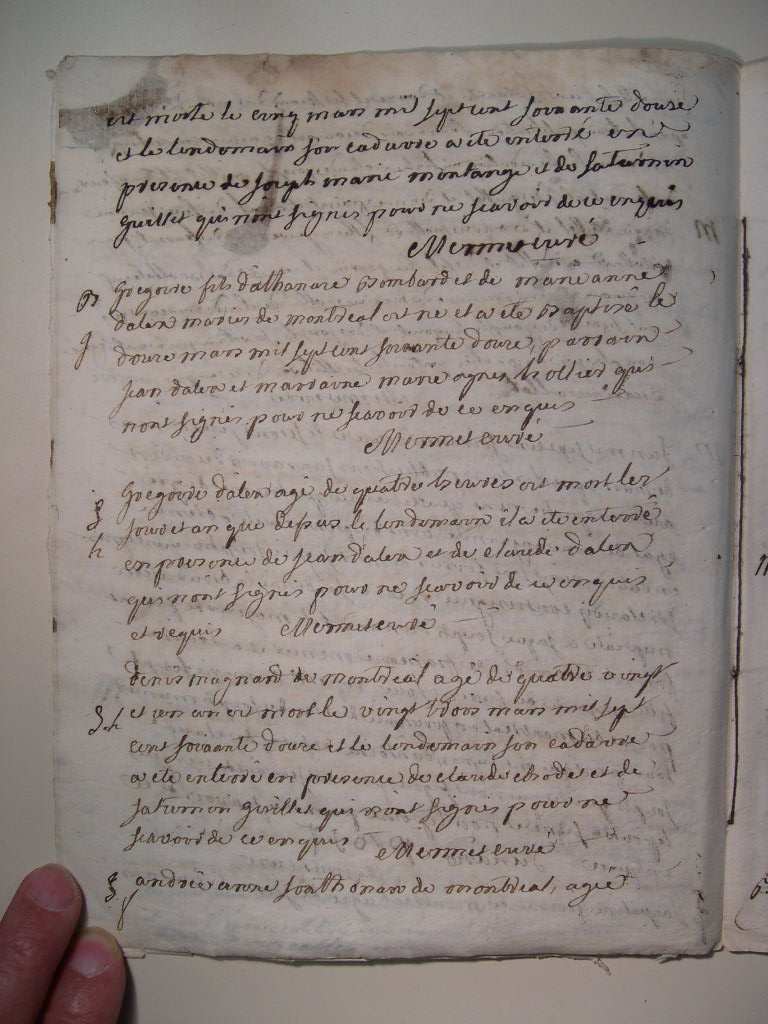 est morte le cinq mars mil sept cent soixante douze
et le lendemain son cadavre a ete enterré en
presence de joseph marie montange et de saturnin
guillet qui n'ont signés pour ne scavoir de ce enquis
Mermet curé
Gregoire fils d'athanaze Bombard et de marie anne
dalex mariés de montreal est né et a ete Baptisé le
douze mars mil sept cent soixante douze, parrain
jean dalex et marraine marie agnes hollier qui
n'ont signés pour ne scavoir de ce enquis
Mermet curé
Gregoire dalex agé de quatre heures est mort les
jour et an que dessus le lendemain il a ete enterré
en presence de jean dalex et de claude dalex
qui n'ont signés pour ne scavoir de ce enquis
et requis Mermet curé
denis magnard de montreal agé de quatre vingt
et un an est mort le vingt trois mars mil sept
cent soixante douze et le lendemain son cadavre
a ete enterré en presence de claude et de
saturnin guillet qui n'ont signés pour ne
scavoir de ce enquis Mermet curé
andrée anne de montreal, agée